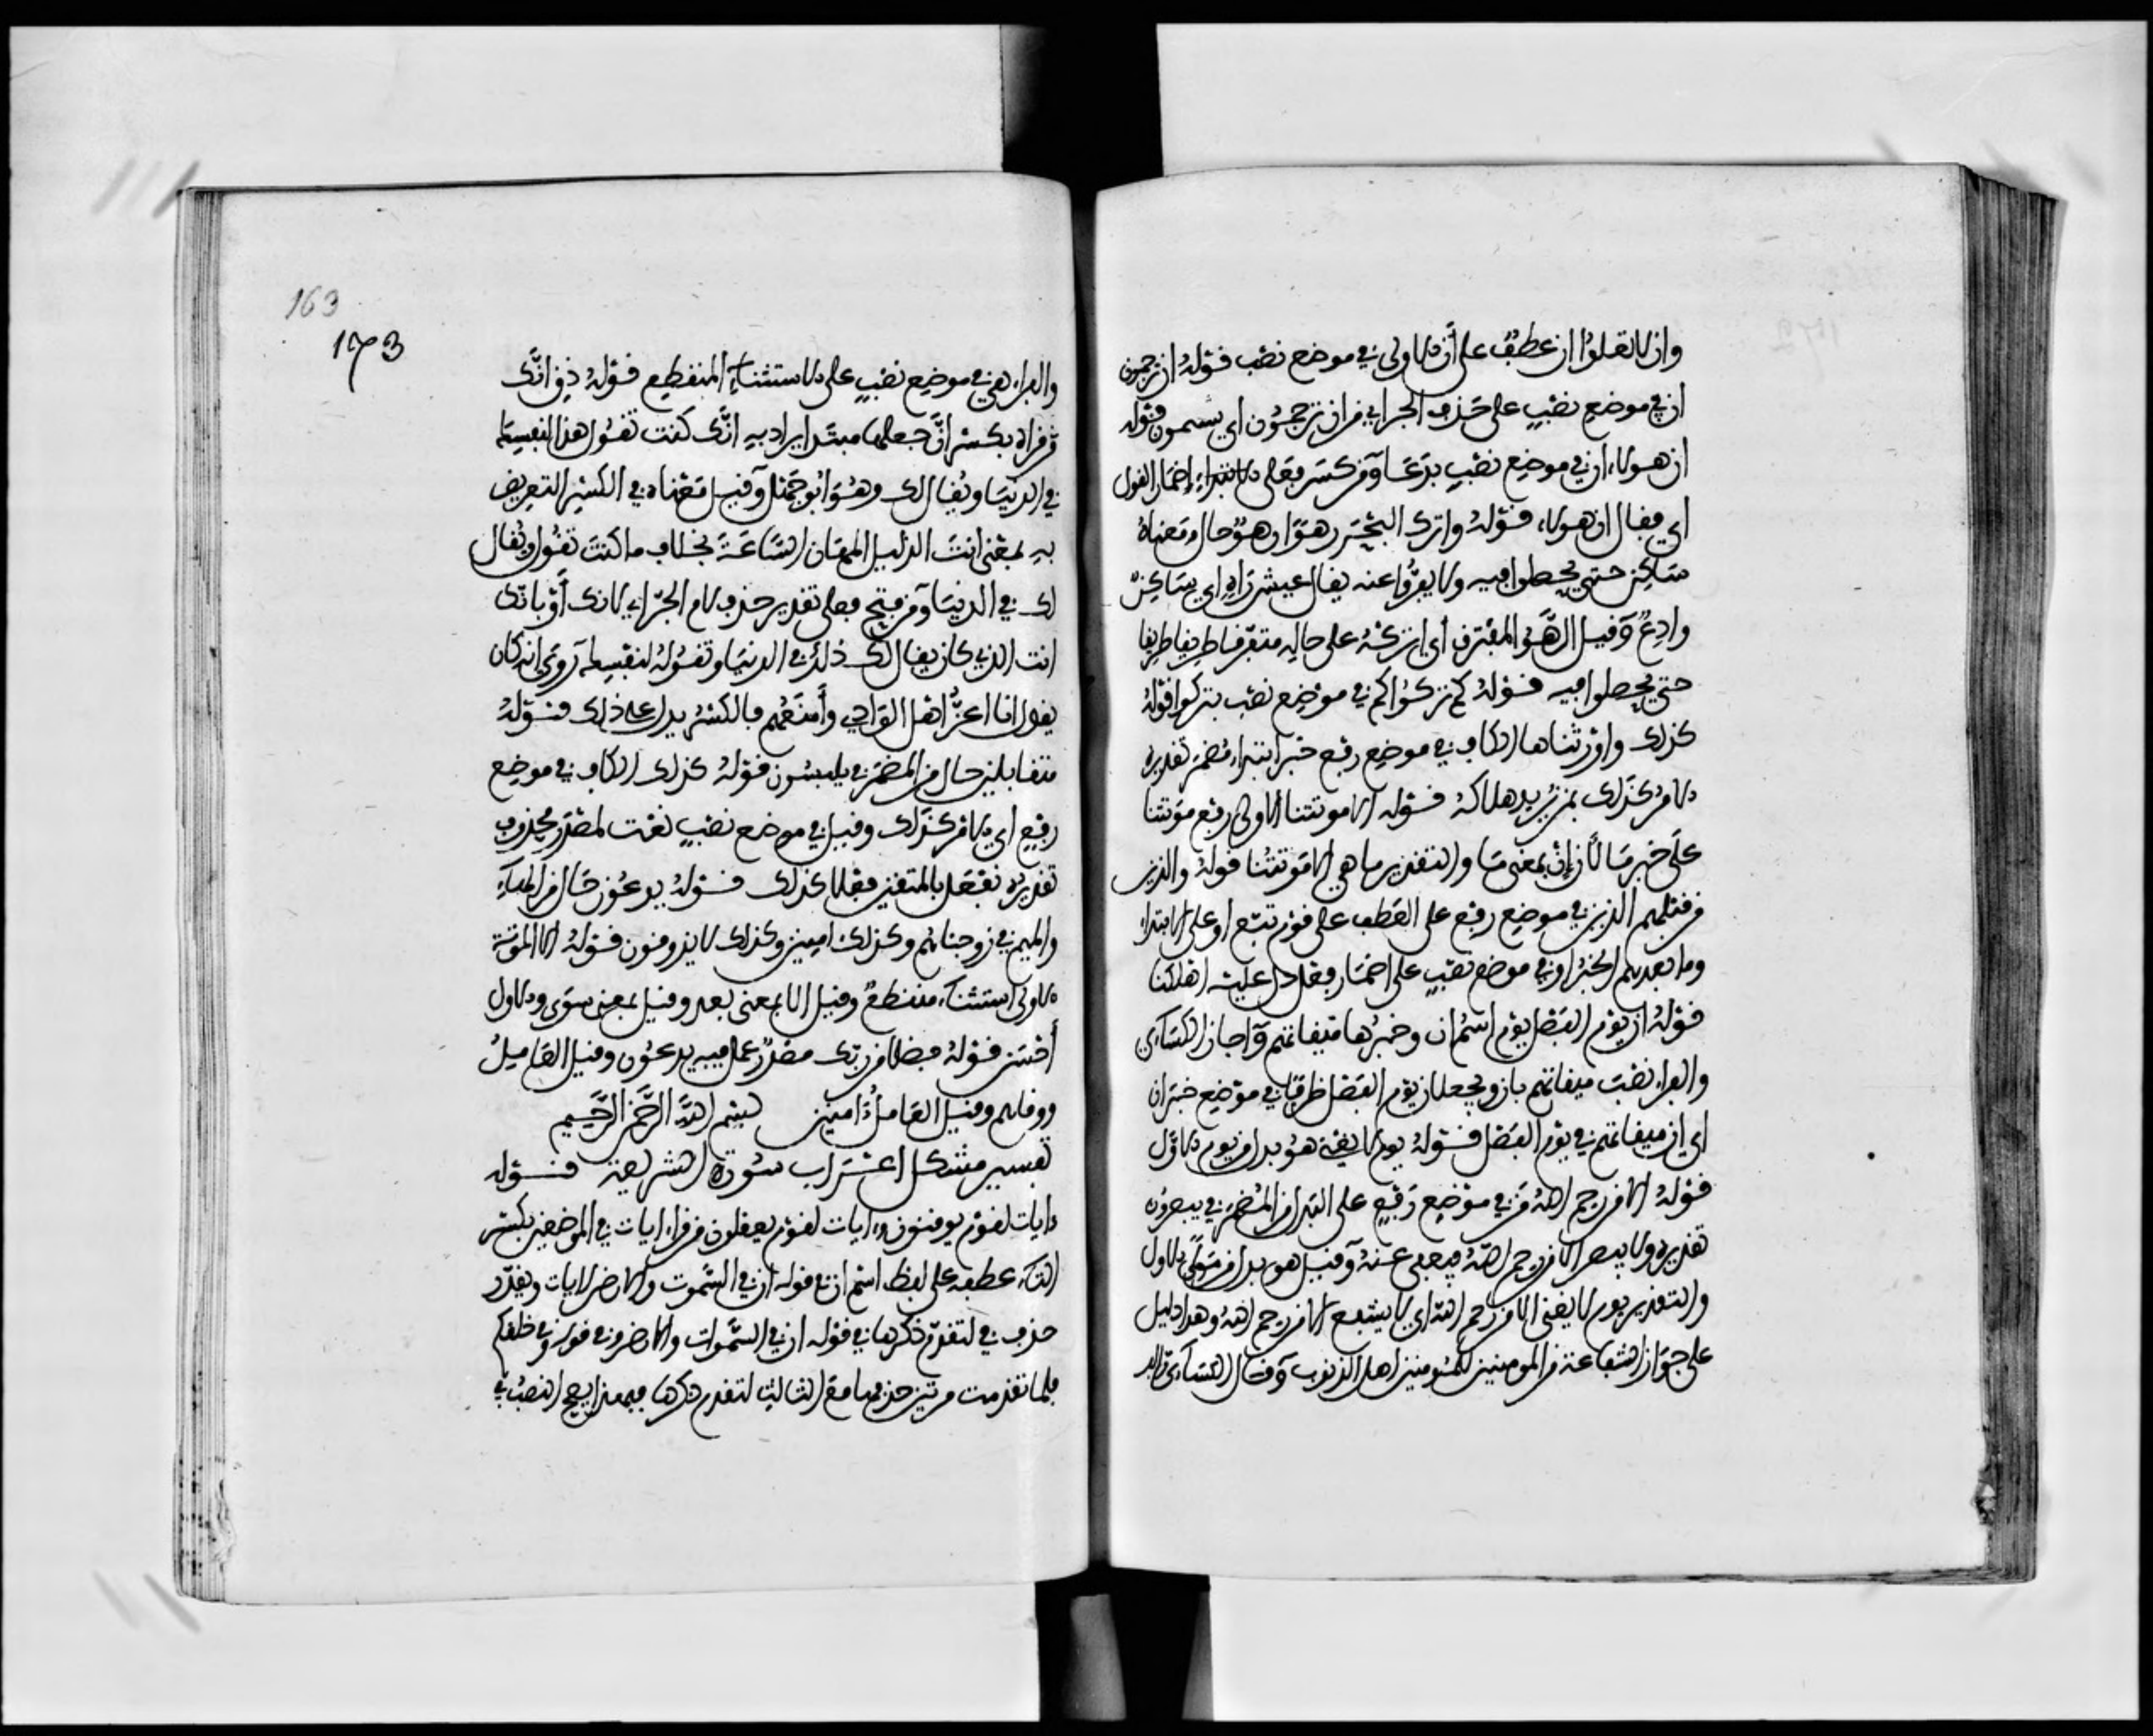 وان لا تعلوا ان عطف على أن الاولى في موضع نصب قوله ان ترجمون
ان في موضع نصب على حذف الجر اي من ان ترجمون اي يشتمون قوله
ان هولاء ان في موضع نصب بدعا ومن كسر فعلى الابتداء واضمار القول
اي فقال ان هولاء قوله واترك البحر رهوا رهوا حال ومعناه
ساكن حتى يحصلوا فيه ولا يفروا عنه يقال عيش راه اي ساكن
وادع وقيل الرهو المفترق أي اتركه على حاله متفرقا طريقا طريقا
حتى يحصلوا فيه قوله كم تركوا كم في موضع نصب بتركوا قوله
كذلك واورثناها الكاف في موضع رفع خبر ابتداء مضمر تقديره
الامر كذلك بمن يريد هلاكه قوله الا موتتنا الاولى رفع موتتنا
على خبر ما لأن إن بمعنى ما والتقدير ما هي الا موتتنا قوله والذين
من قبلهم الذين في موضع رفع على العطف على قوم تبع او على الابتداء
وما بعدهم الخبر او في موضع نصب على اضمار فعل دل عليه اهلكنا
قوله ان يوم الفصل يوم اسم ان وخبرها ميقاتهم وأجاز الكسائي
والفراء نصب ميقاتهم بان ويجعلان يوم الفصل ظرفا في موضع خبر ان
اي ان ميقاتهم في يوم الفصل قوله يوم لا يغني هو بدل من يوم الاول
قوله الا من رحم الله من في موضع رفع على البدل من المضمر في ينصرون
تقديره ولا ينصر الا من رحم الله فيعفى عنه وقيل هو بدل من مولى الاول
والتقدير يوم لا يغني الا من رحم الله اي لا يشفع الا من رحم الله وهذا دليل
على جواز الشفاعة من المومنين للمومنين اهل الذنوب وقال الكسائي
163
173
والفراء هي في موضع نصب على الاستثناء المنقطع قوله ذق انك
من قراه بكسر ان جعلها مبتدا يراد به انك كنت تقول هذا لنفسك
في الدنيا ويقال لك وهو ابو جهل وقيل معناه في الكسر التعريض
به بمعنى انت الذليل المهان الساعة بخلاف ما كنت تقول ويقال
لك في الدنيا ومن فتح فعلى تقدير حذف لام الجر اي لانك أو بانك
انت الذي كان يقال لك ذلك في الدنيا وتقوله لنفسك روي انه كان
يقول انا اعز اهل الوادي وأمنعهم فالكسر يدل على ذلك قوله
متقابلين حال من المضمر في يلبسون قوله كذلك الكاف في موضع
رفع اي الامر كذلك وقيل في موضع نصب نعت لمصدر محذوف
تقديره نفعل بالمتقين فعلا كذلك قوله يدعون حال من الهاء
والميم في زوجناهم وكذلك امنين وكذلك لا يذوقون قوله الا الموتة
الاولى استثناء منقطع وقيل الا بمعنى بعد وقيل بمعنى سوى والاول
أحسن قوله فضلا من ربك مصدر عمل فيه يدعون وقيل العامل
ووقاهم وقيل العامل امنين بسم الله الرحمن الرحيم
تفسير مشكل اعراب سورة الشريعة قوله
ءايات لقوم يوقنون وءايات لقوم يعقلون من قراء ايات في الموضعين بكسر
التاء عطفه على لفظ اسم ان في قوله ان في السموت والارض لايات ويقدر
حذف في لتقدم ذكرها في قوله ان في السموات والارض وفي قوله وفي خلقكم
فلما تقدمت مرتين حذفها مع الثالث لتقدم ذكرها فبهذا يصح النصب في